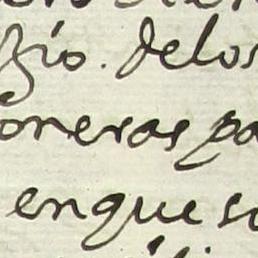 zio. delos
oneras pa
enque so